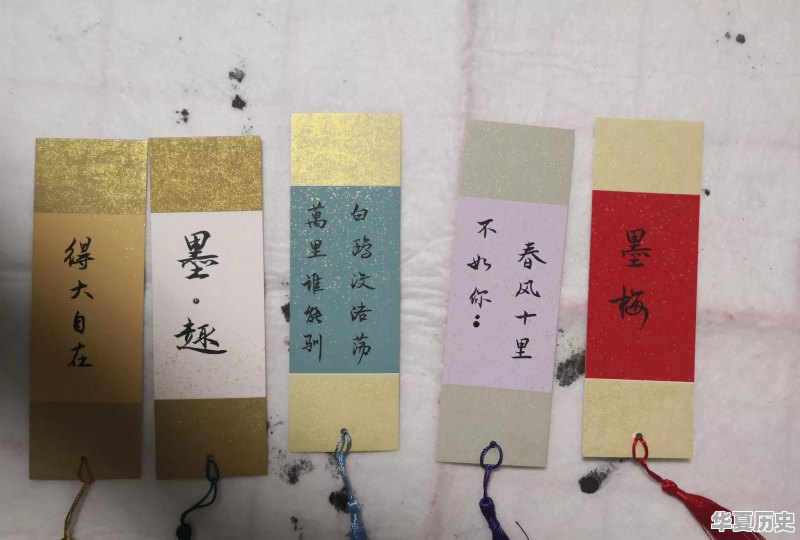 得大自在
墨·趣
白鸥没浩荡
萬里谁能驯
春风十里
不如你
墨梅
华夏历史